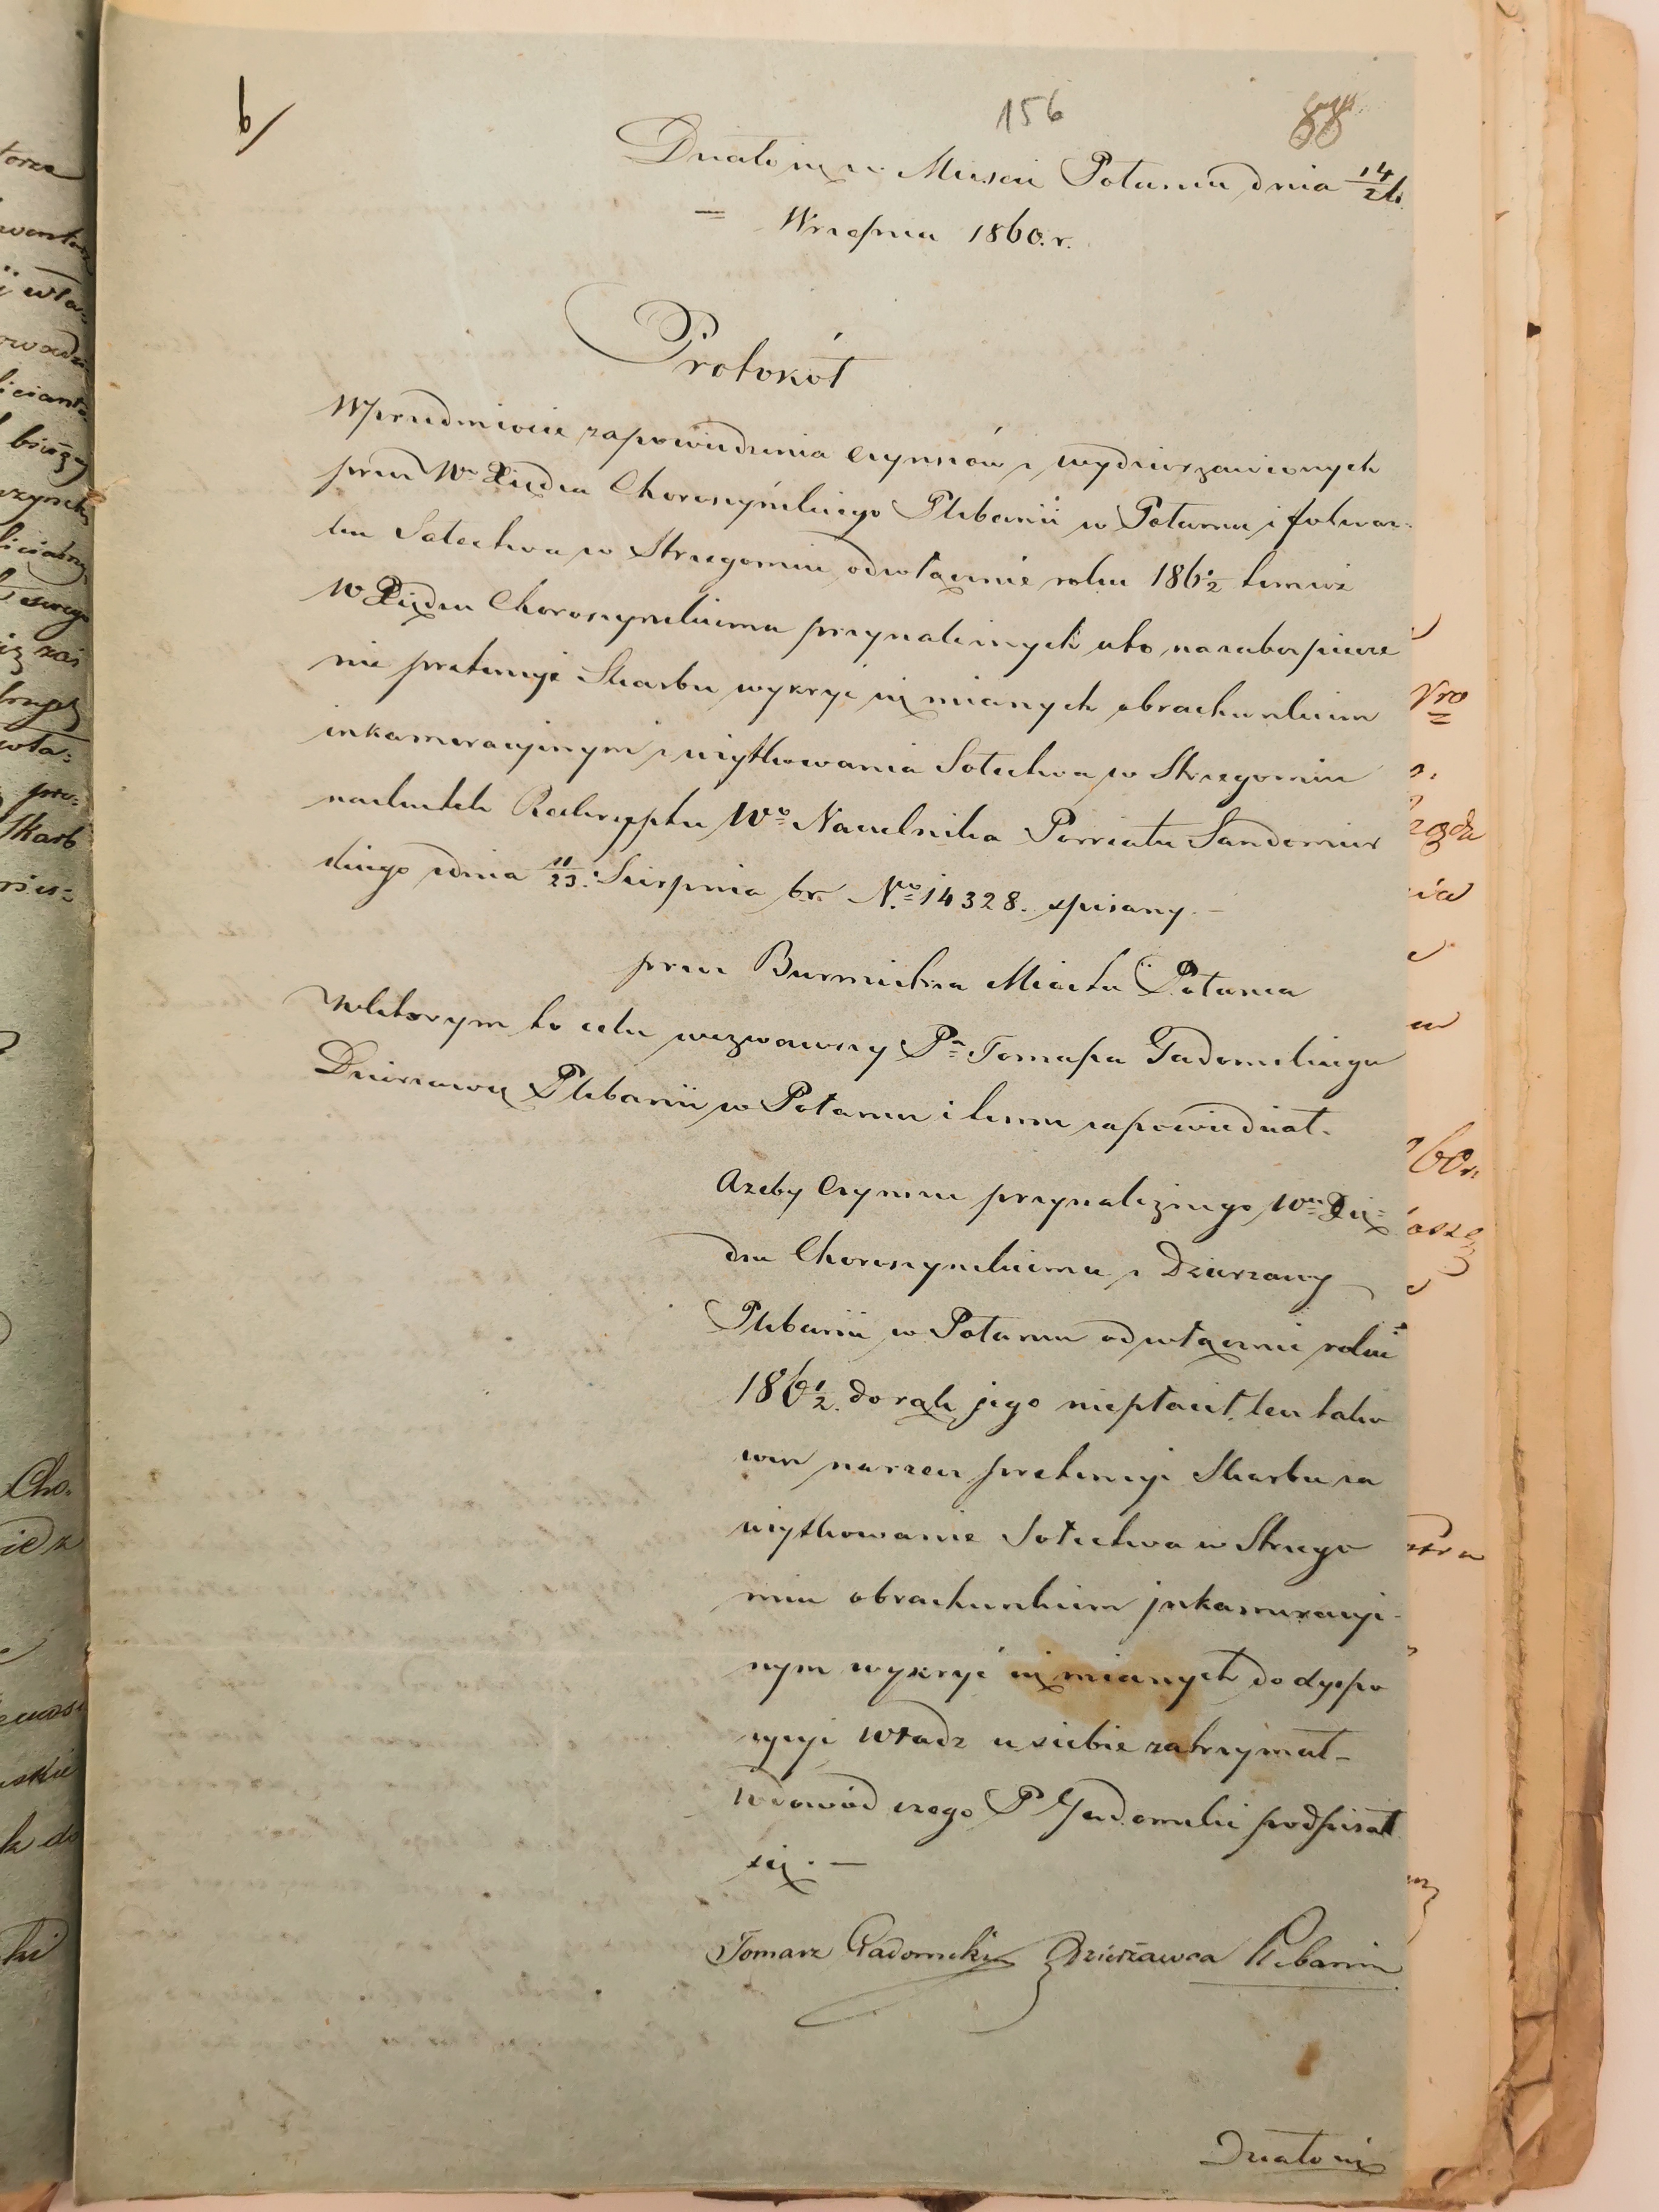 b/
156
88
Działo się w Mieście Połańcu dnia 14/26.
= Września 1860. r.
Protokół
W przedmiocie zapowiedzenia czynszów z wydzierżawionych
przez Wo Xiędza Choroszyńskiego Plebanii w Połańcu i folwar:
ku Sołectwa w Strzegomiu odwłącznie roku 186½ temuż
W Xiędzu Choroszyńskiemu przynależnych a to na zabezpiecze
nie pretensyi Skarbu wykryć się mianych obrachunkiem
inkameracyjnym z użytkowania Sołectwa w Strzegomiu
na skutek Reskryptu Wo Naczelnika Powiatu Sandomier
skiego z dnia 11/23. Sierpnia br. No 14328. spisany. –
przez Burmistrza Miasta Połańca
W którym to celu wezwawszy Pa Tomasza Gadomskiego
Dzierżawcę Plebanii w Połańcu i temu zapowiedział.
Ażeby Czynszu przynależnego Wmu Xię=
dzu Choroszyńskiemu z Dzierżawy
Plebanii w Połańcu odwłącznie roku
186½. do rąk jego niepłacił, lecz tako
wen na rzecz pretensyi Skarbu za
użytkowanie Sołectwa w Strzego
miu obrachunkiem jnkameracyj-
nym wykryć się mianych do dyspo
zycyi Władz u siebie zatrzymał –
W dowód czego P Gadomski podpisał
się. —
Tomasz Gadomski Dzierżawca Plebanii
Działo się